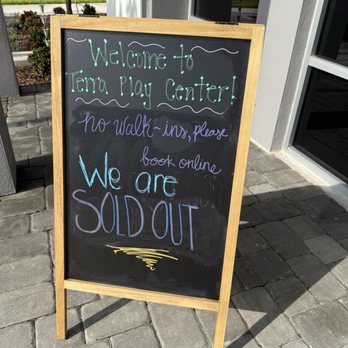 Welcome to
Terra Play Center!
no walk-ins, please
book online
We are
SOLD OUT